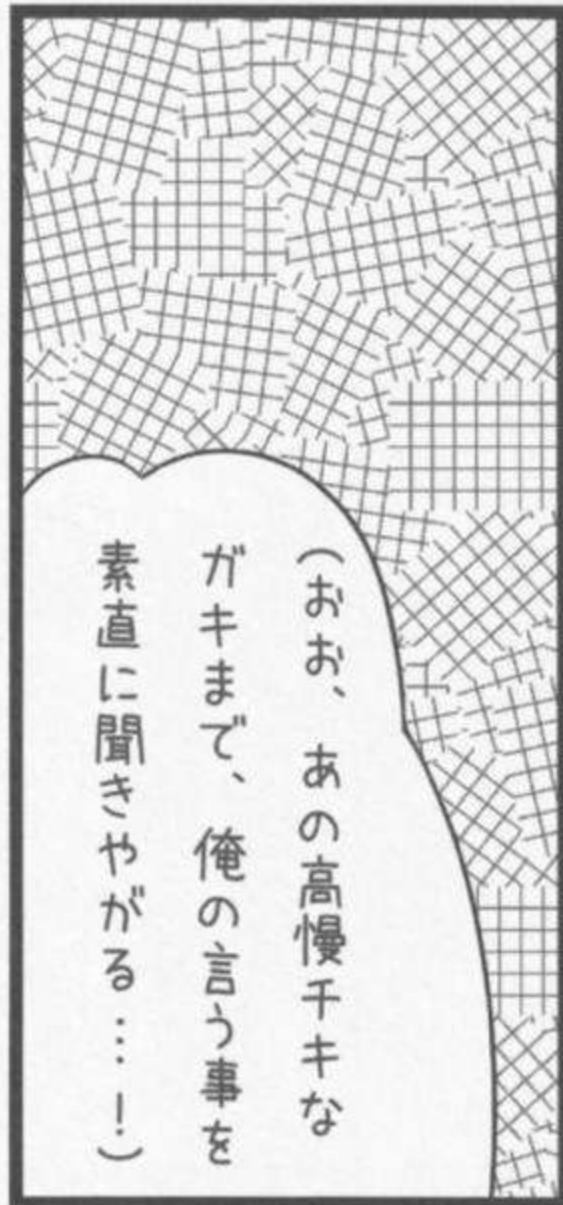 （おお、あの高慢チキな
ガキまで、俺の言う事を
素直に聞きやがる…！）